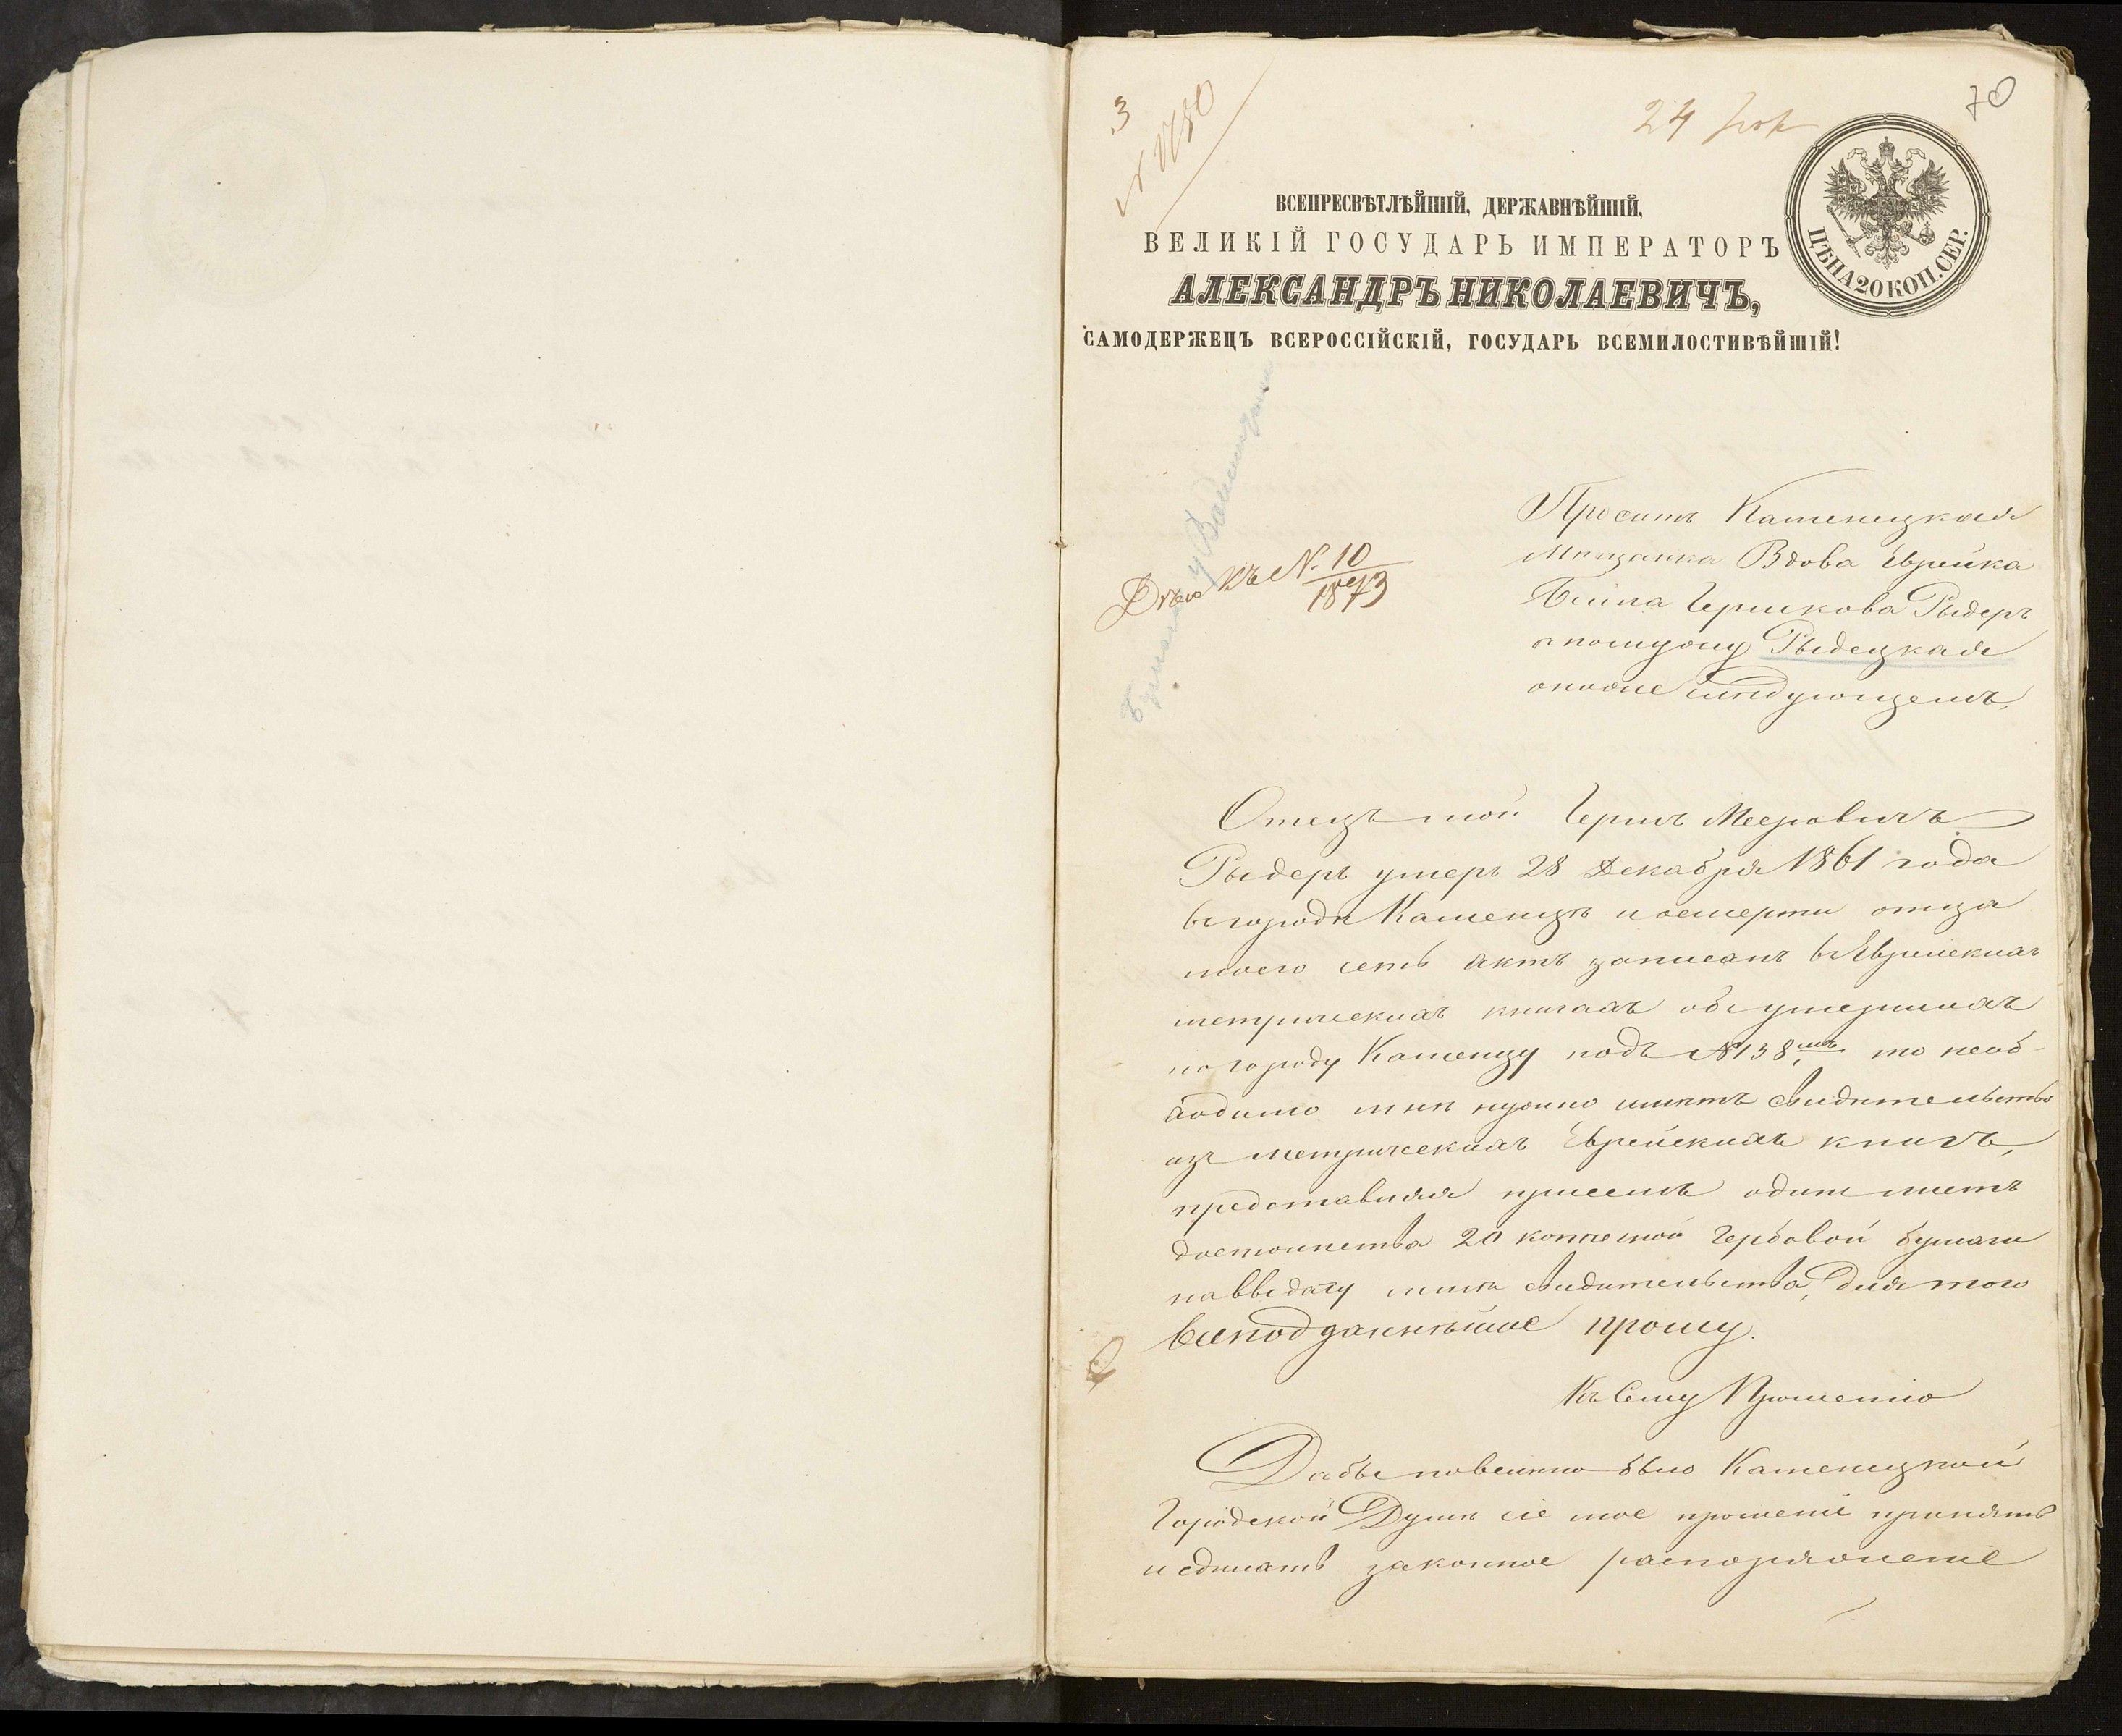 3
70
ЦѢНА 20 КОП. СЕР.
ВСЕПРЕСВѢТЛѢЙШІЙ, ДЕРЖАВНѢЙШІЙ,
ВЕЛИКІЙ ГОСУДАРЬ ИМПЕРАТОРЪ
АЛЕКСАНДРЪ НИКОЛАЕВИЧЪ,
САМОДЕРЖЕЦЪ ВСЕРОССІЙСКІЙ, ГОСУДАРЬ ВСЕМИЛОСТИВѢЙШІЙ!
Проситъ Каменецкая
Мѣщанка Вдова Еврейка
Бейла Гершкова Рыдеръ
апомужу Рыдецкая
онижеслѣдующемъ,
Дѣло къ N. 10
1873
Отецъ мой Гершъ Мееровичъ
Рыдеръ умеръ 28 Декабря 1861 года
въ городѣ Каменцѣ и осмерти отца
моего сетъ актъ записанъ въ Еврейскихъ
метрическихъ книгахъ объ умершихъ
по городу Каменцу подъ №138,мъ то необ-
ходимо мнѣ нужно имѣтъ свидѣтельство
изъ метрическихъ Еврейскихъ книгъ,
представляя присемъ одинъ листъ
достоинства 20 копѣечной Гербовой бумаги
на выдачу мнѣ свидѣтельства, Для того
всеподданнѣйше прошу.
Къ Сему Прошенію
Дабы повелѣно было Каменецкой
Городской Думѣ сіе мое прошеніе принять
и сдѣлать законное распоряженіе